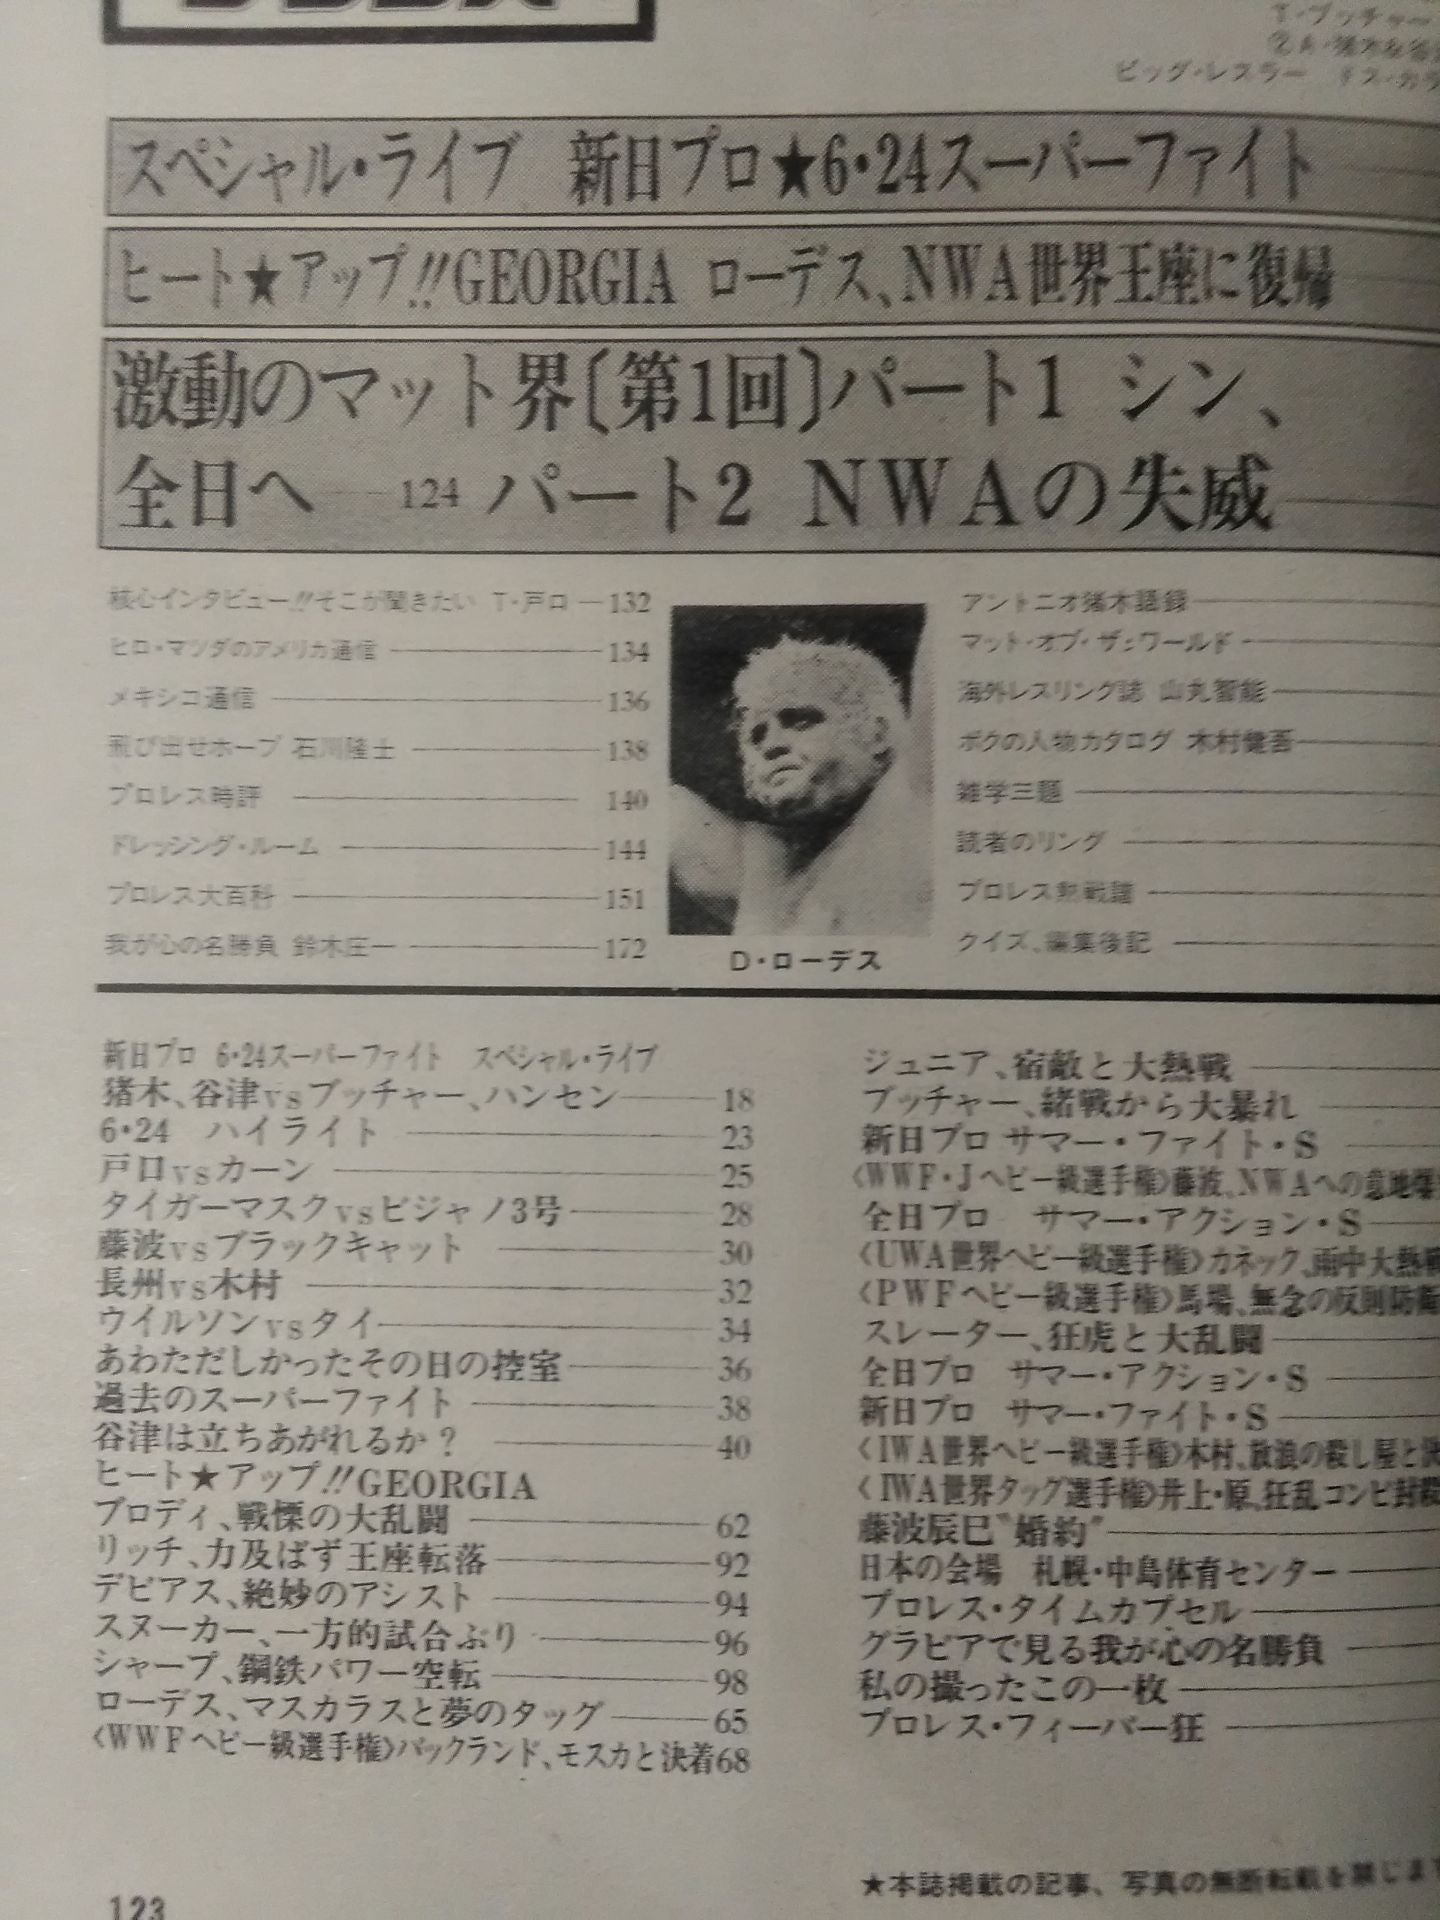 T・ブッチャー
ビッグ・レスラー
スペシャル・ライブ 新日プロ★6・24スーパーファイト
ヒート★アップ!!GEORGIA ローデス、NWA世界王座に復帰
激動のマット界〔第1回〕パート1 シン、
全日へ 124 パート2 NWAの失威
核心インタビュー!!そこが聞きたい T・戸口 132
ヒロ・マツダのアメリカ通信 134
メキシコ通信 136
飛び出せホープ 石川隆士 138
プロレス時評 140
ドレッシング・ルーム 144
プロレス大百科 151
我が心の名勝負 鈴木庄一 172
D・ローデス
アントニオ猪木語録
マット・オブ・ザ・ワールド
海外レスリング誌 山丸智能
ボクの人物カタログ 木村健吾
雑学三題
読者のリング
プロレス熱戦譜
クイズ、編集後記
新日プロ 6・24スーパーファイト スペシャル・ライブ
猪木、谷津vsブッチャー、ハンセン 18
6・24 ハイライト 23
戸口vsカーン 25
タイガーマスクvsビジャノ3号 28
藤波vsブラックキャット 30
長州vs木村 32
ウイルソンvsタイ 34
あわただしかったその日の控室 36
過去のスーパーファイト 38
谷津は立ちあがれるか? 40
ヒート★アップ!!GEORGIA
ブロディ、戦慄の大乱闘 62
リッチ、力及ばず王座転落 92
デビアス、絶妙のアシスト 94
スヌーカー、一方的試合ぶり 96
シャープ、鋼鉄パワー空転 98
ローデス、マスカラスと夢のタッグ 65
〈WWFヘビー級選手権〉バックランド、モスカと決着68
ジュニア、宿敵と大熱戦
ブッチャー、緒戦から大暴れ
新日プロ サマー・ファイト・S
〈WWF・Jヘビー級選手権〉藤波、NWAへの意地爆
全日プロ サマー・アクション・S
〈UWA世界ヘビー級選手権〉カネック、雨中大熱戦
〈PWFヘビー級選手権〉馬場、無念の反則防衛
スレーター、狂虎と大乱闘
全日プロ サマー・アクション・S
新日プロ サマー・ファイト・S
〈IWA世界ヘビー級選手権〉木村、放浪の殺し屋と決
〈IWA世界タッグ選手権〉井上・原、狂乱コンビ封殺
藤波辰巳〝婚約〟
日本の会場 札幌・中島体育センター
プロレス・タイムカプセル
グラビアで見る我が心の名勝負
私の撮ったこの一枚
プロレス・フィーバー狂
★本誌掲載の記事、写真の無断転載を禁じます
123